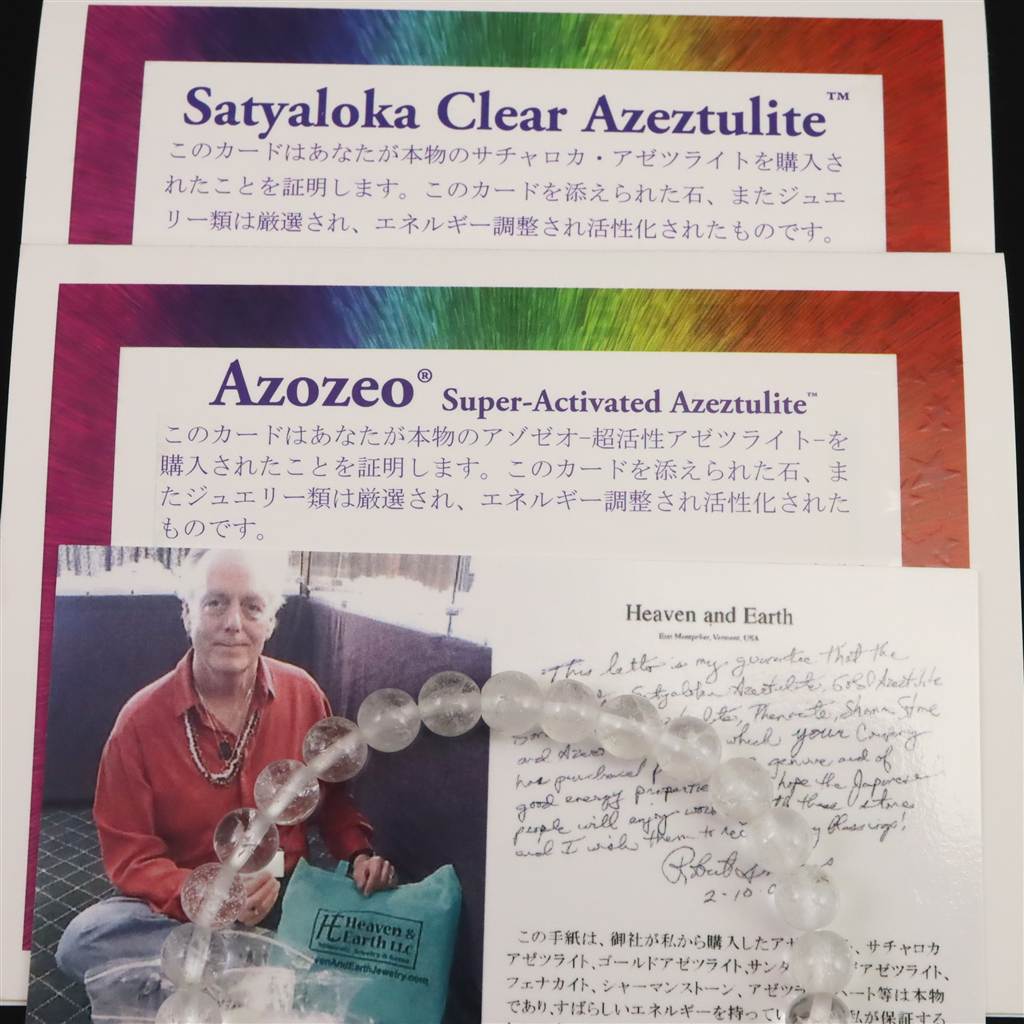 Satyaloka Clear Azeztulite™
このカードはあなたが本物のサチャロカ・アゼツライトを購入さ
れたことを証明します。このカードを添えられた石、またジュエ
リー類は厳選され、エネルギー調整され活性化されたものです。
Azozeo® Super-Activated Azeztulite™
このカードはあなたが本物のアゾゼオ-超活性アゼツライト-を
購入されたことを証明します。このカードを添えられた石、ま
たジュエリー類は厳選され、エネルギー調整され活性化された
ものです。
Heaven and Earth
East Montpelier, Vermont, USA
This letter is my guarantee that the
Satyaloka Azeztulite, Gold Azeztulite
Phenacite, Shaman Stone
and Azez which your Company
has purchased genuine and of
good energy propertie hope the Japanese
people will enjoy wor these stones
and I wish them to rec y Blessings!
Robert
2-10-0
この手紙は、御社が私から購入したアゼ サチャロカ
アゼツライト、ゴールドアゼツライト、サンダ ドアゼツライト、
フェナカイト、シャーマンストーン、アゼツラ ハート等は本物
であり、すばらしいエネルギーを持ってい 私が保証する
HE Heaven &
Earth LLC
venAndEarthJewelry.com